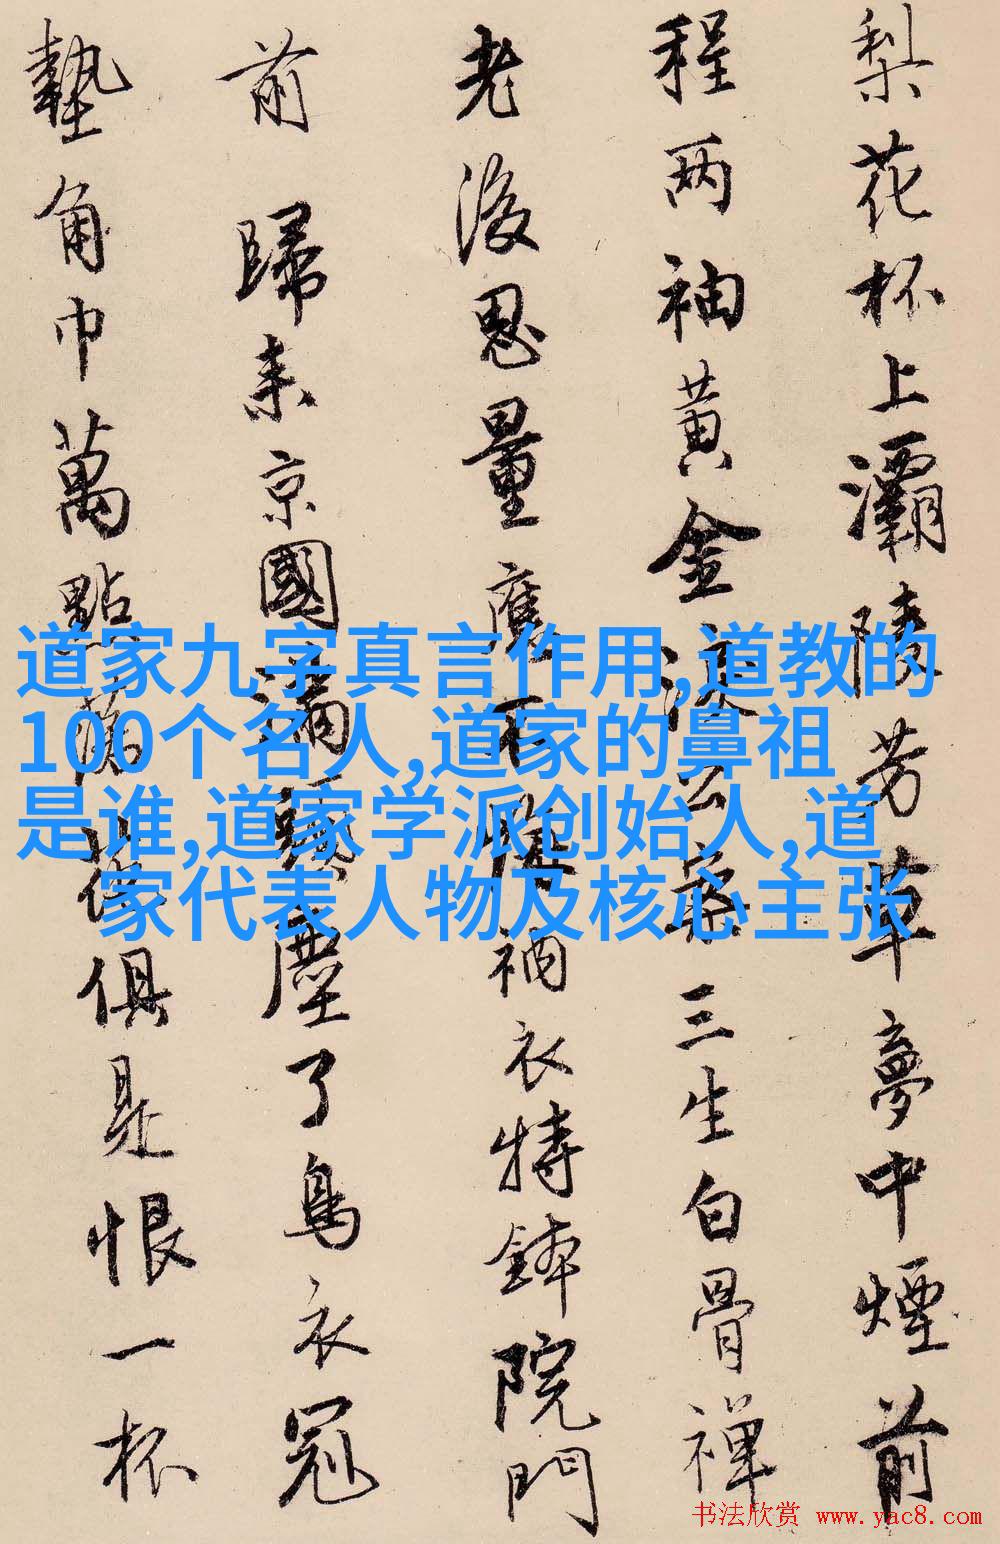 梨花杯上灞陵芳草夢中煙前
程两袖黄金淚公案三生白骨禅
老後思量應不悔衲衣持鉢院門
前 歸来京國滿頭塵了烏衣冠
墊角巾萬點落俱是恨一杯
道家九字真言作用,道教的
100个名人,道家的鼻祖
是谁,道家学派创始人,道
家代表人物及核心主张
书法欣赏 www.yac8.com